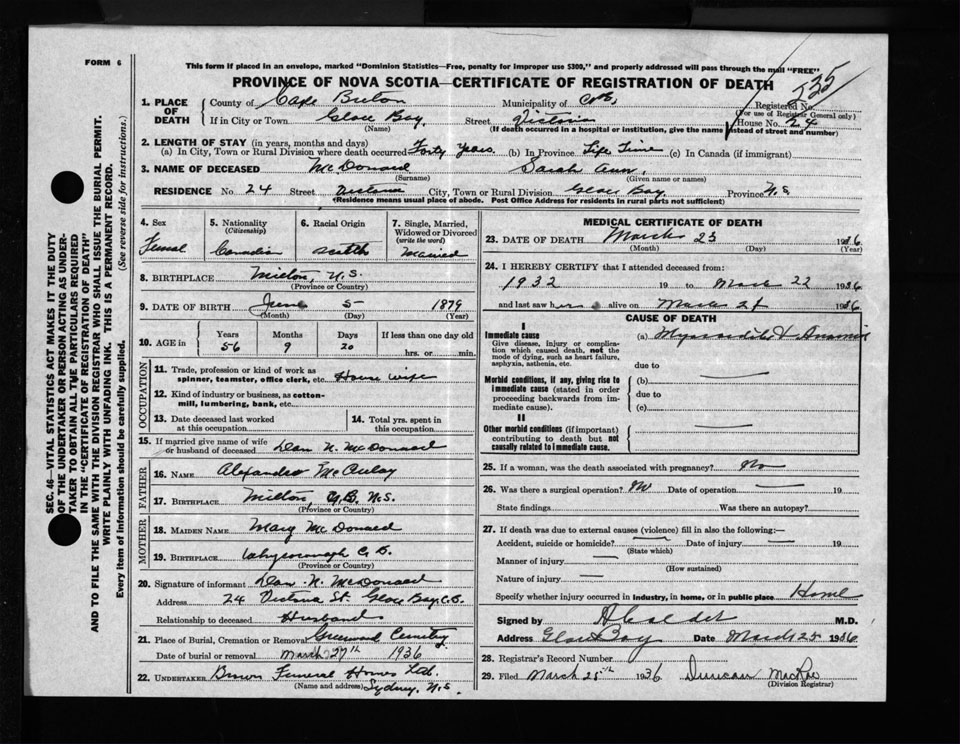 FORM 6
This form if placed in an envelope, marked "Dominion Statistics—Free, penalty for improper use $300," and properly addressed will pass through the mail "FREE"
PROVINCE OF NOVA SCOTIA—CERTIFICATE OF REGISTRATION OF DEATH
535
1. PLACE OF DEATH
County of Cape Breton Municipality of Registered No.
(For use of Registrar General only)
If in City or Town Glace Bay, Street Victoria House No. 24
(Name) (If death occurred in a hospital or institution, give the name instead of street and number)
2. LENGTH OF STAY (in years, months and days)
(a) In City, Town or Rural Division where death occurred Forty years (b) In Province Life Time (c) In Canada (if immigrant)
3. NAME OF DECEASED McDonald Sarah Ann
(Surname) (Given name or names)
RESIDENCE No. 24 Street Victoria City, Town or Rural Division Glace Bay Province N.S
(Residence means usual place of abode. Post Office Address for residents in rural parts not sufficient)
4. Sex
Female
5. Nationality
(Citizenship)
Canadian
6. Racial Origin
7. Single, Married, Widowed or Divorced
(write the word)
Married
8. BIRTHPLACE N.S.
(Province or Country)
9. DATE OF BIRTH June 5 1879
(Month) (Day) (Year)
10. AGE in
Years Months Days If less than one day old
56 9 20 hrs. or min.
OCCUPATION
11. Trade, profession or kind of work as spinner, teamster, office clerk, etc. House wife
12. Kind of industry or business, as cotton-mill, lumbering, bank, etc.
13. Date deceased last worked at this occupation
14. Total yrs. spent in this occupation
15. If married give name of wife or husband of deceased Dan N. McDonald
FATHER
16. NAME Alexander McAulay
17. BIRTHPLACE C.B. N.S.
(Province or Country)
MOTHER
18. MAIDEN NAME Mary McDonald
19. BIRTHPLACE Whycocomagh C.B.
(Province or Country)
20. Signature of informant Dan N. McDonald
Address 24 Victoria St. Glace Bay, C.B.
Relationship to deceased Husband
21. Place of Burial, Cremation or Removal Greenwood Cemetery
Date of burial or removal March 27th 1936
22. UNDERTAKER Brown Funeral Homes Ltd.
(Name and address) Sydney, N.S.
MEDICAL CERTIFICATE OF DEATH
23. DATE OF DEATH March 25 1936
(Month) (Day) (Year)
24. I HEREBY CERTIFY that I attended deceased from:
1932 19 to March 22 1936
and last saw her alive on March 21 1936
CAUSE OF DEATH
I
Immediate cause
Give disease, injury or complication which caused death, not the mode of dying, such as heart failure, asphyxia, asthenia, etc.
(a) Myocarditis &
due to
Morbid conditions, if any, giving rise to immediate cause (stated in order proceeding backwards from immediate cause).
(b)
due to
(c)
II
Other morbid conditions (if important) contributing to death but not causally related to immediate cause.
25. If a woman, was the death associated with pregnancy? No
26. Was there a surgical operation? No Date of operation 19
State findings Was there an autopsy?
27. If death was due to external causes (violence) fill in also the following:—
Accident, suicide or homicide? Date of injury 19
(State which)
Manner of injury
(How sustained)
Nature of injury
Specify whether injury occurred in industry, in home, or in public place Home
Signed by M.D.
Address Glace Bay Date March 25 1936
28. Registrar's Record Number
29. Filed March 25th 1936 Duncan MacRae
(Division Registrar)
SEC. 46—VITAL STATISTICS ACT MAKES IT THE DUTY
OF THE UNDERTAKER OR PERSON ACTING AS UNDER-
TAKER TO OBTAIN ALL THE PARTICULARS REQUIRED
IN THE "CERTIFICATE OF REGISTRATION OF DEATH"
AND TO FILE THE SAME WITH THE DIVISION REGISTRAR WHO SHALL ISSUE THE BURIAL PERMIT.
WRITE PLAINLY WITH UNFADING INK. THIS IS A PERMANENT RECORD.
Every item of information should be carefully supplied. (See reverse side for instructions.)